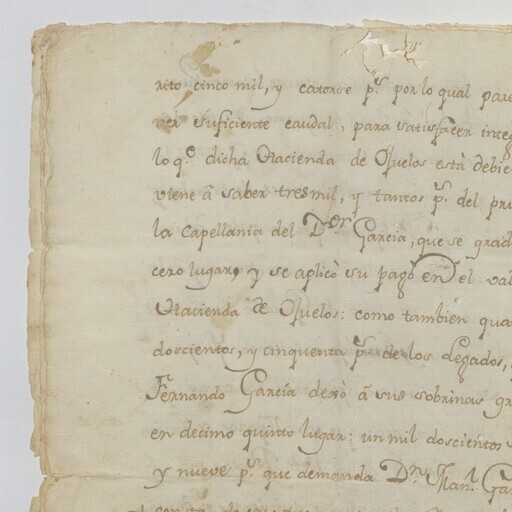 rito cinco mil, y catorse p.s por lo qual pare
ver suficiente caudal, para satisfacer integ
lo q.e dicha Hacienda de Ojuelos està debie
viene â saber tres mil, y tantos p.s del pri
la Capellania del D.or Garcia, que se grad
cero lugar, y se aplicò su pago en el val
Hacienda de Ojuelos: como tambien qua
doscientos, y cinquenta p.s de los Legados,
Fernando Garcia dexò â sus sobrinas gr
en decimo quinto lugar: un mil doscientos
y nueve p.s que demanda D.n Man.l Gar